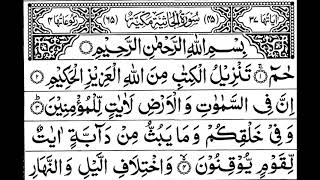 اٰیَاتُهَا ٣٧ (٤٥) سُوْرَةُ الْجَاثِيَةِ مَكِّيَّةٌ (٦٥) رُكُوْعَاتُهَا ٤
بِسْمِ اللّٰهِ الرَّحْمٰنِ الرَّحِيْمِ
حٰمٓ ۝١ تَنْزِيْلُ الْكِتٰبِ مِنَ اللّٰهِ الْعَزِيْزِ الْحَكِيْمِ ۝
اِنَّ فِى السَّمٰوٰتِ وَ الْاَرْضِ لَاٰيٰتٍ لِّلْمُؤْمِنِيْنَ ۝
وَ فِىْ خَلْقِكُمْ وَ مَا يَبُثُّ مِنْ دَآبَّةٍ اٰيٰتٌ
لِّقَوْمٍ يُّوْقِنُوْنَ ۝ وَ اخْتِلَافِ الَّيْلِ وَ النَّهَارِ